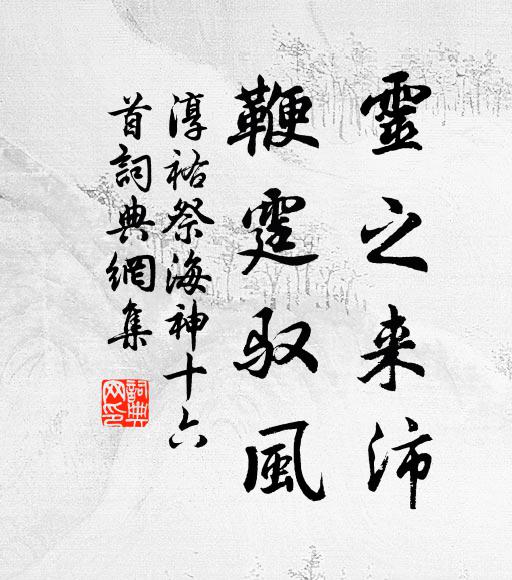 靈之来沛
鞭霆驭風
淳祐祭海神十六
首詞典網集
詞典
网印